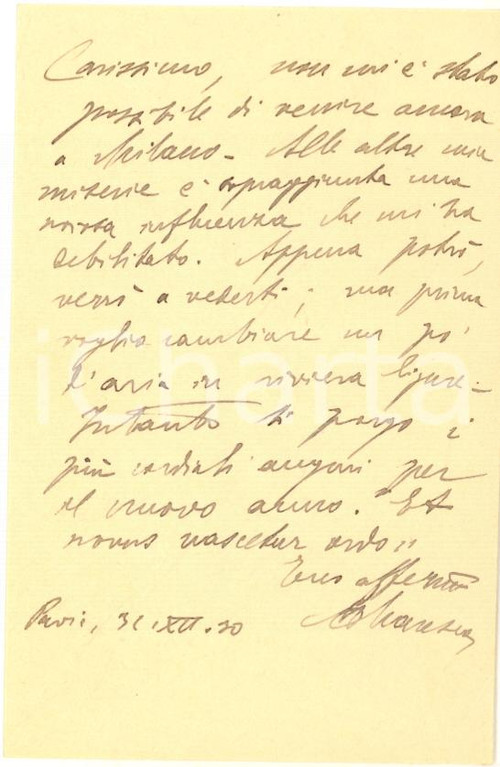 Carissimo, non mi è stato
possibile di venire ancora
a Milano - Alle altre mie
miserie è sopraggiunta una
noiosa influenza che mi ha
debilitato. Appena potrò,
verrò a vederti; ma prima
voglio cambiare un po'
l'aria in riviera ligure -
Intanto ti porgo i
più cordiali auguri per
il nuovo anno. "Et
novus nascetur ordo"
Tuo affemo
31.XII.30
iCharta